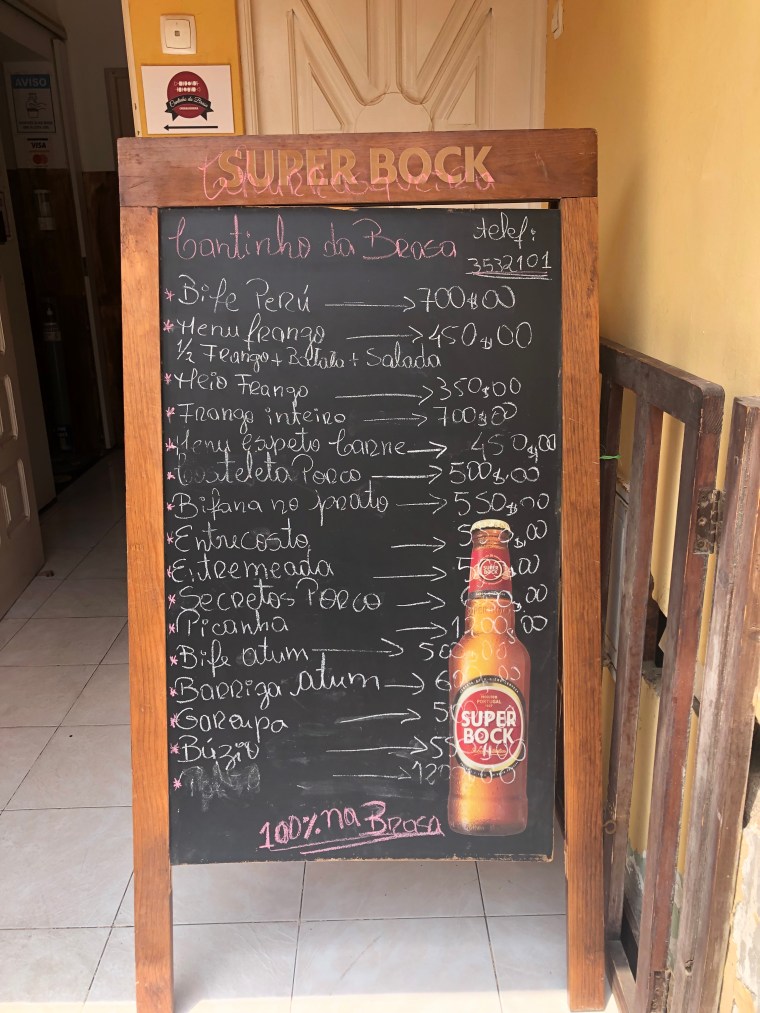 AVISO
VISA
Cantinho da Brasa
SUPER BOCK
Churrasqueira
Cantinho da Brasa
telef:
3532101
* Bife Perú 700$00
* Menu frango 450$00
1/2 Frango + Batata + Salada
* Meio Frango 350$00
* Frango inteiro 700$00
* Menu Espeto Carne 450$00
* Costeleta Porco 500$00
* Bifana no prato 550$00
* Entrecosto
* Entremeada
* Secretos Porco
* Picanha
* Bife atum
* Barriga Atum
* Garoupa
* Búzio
*
100% na Brasa
SUPER BOCK
PORTUGAL
SUPER
BOCK